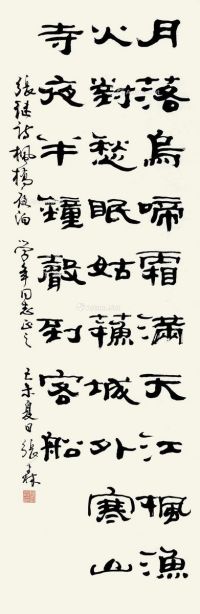 月落烏啼霜滿天江楓漁
火對愁眠姑蘇城外寒山
寺夜半鐘聲到客船
張継詩楓橋夜泊 學年同志正之 己未夏日張森